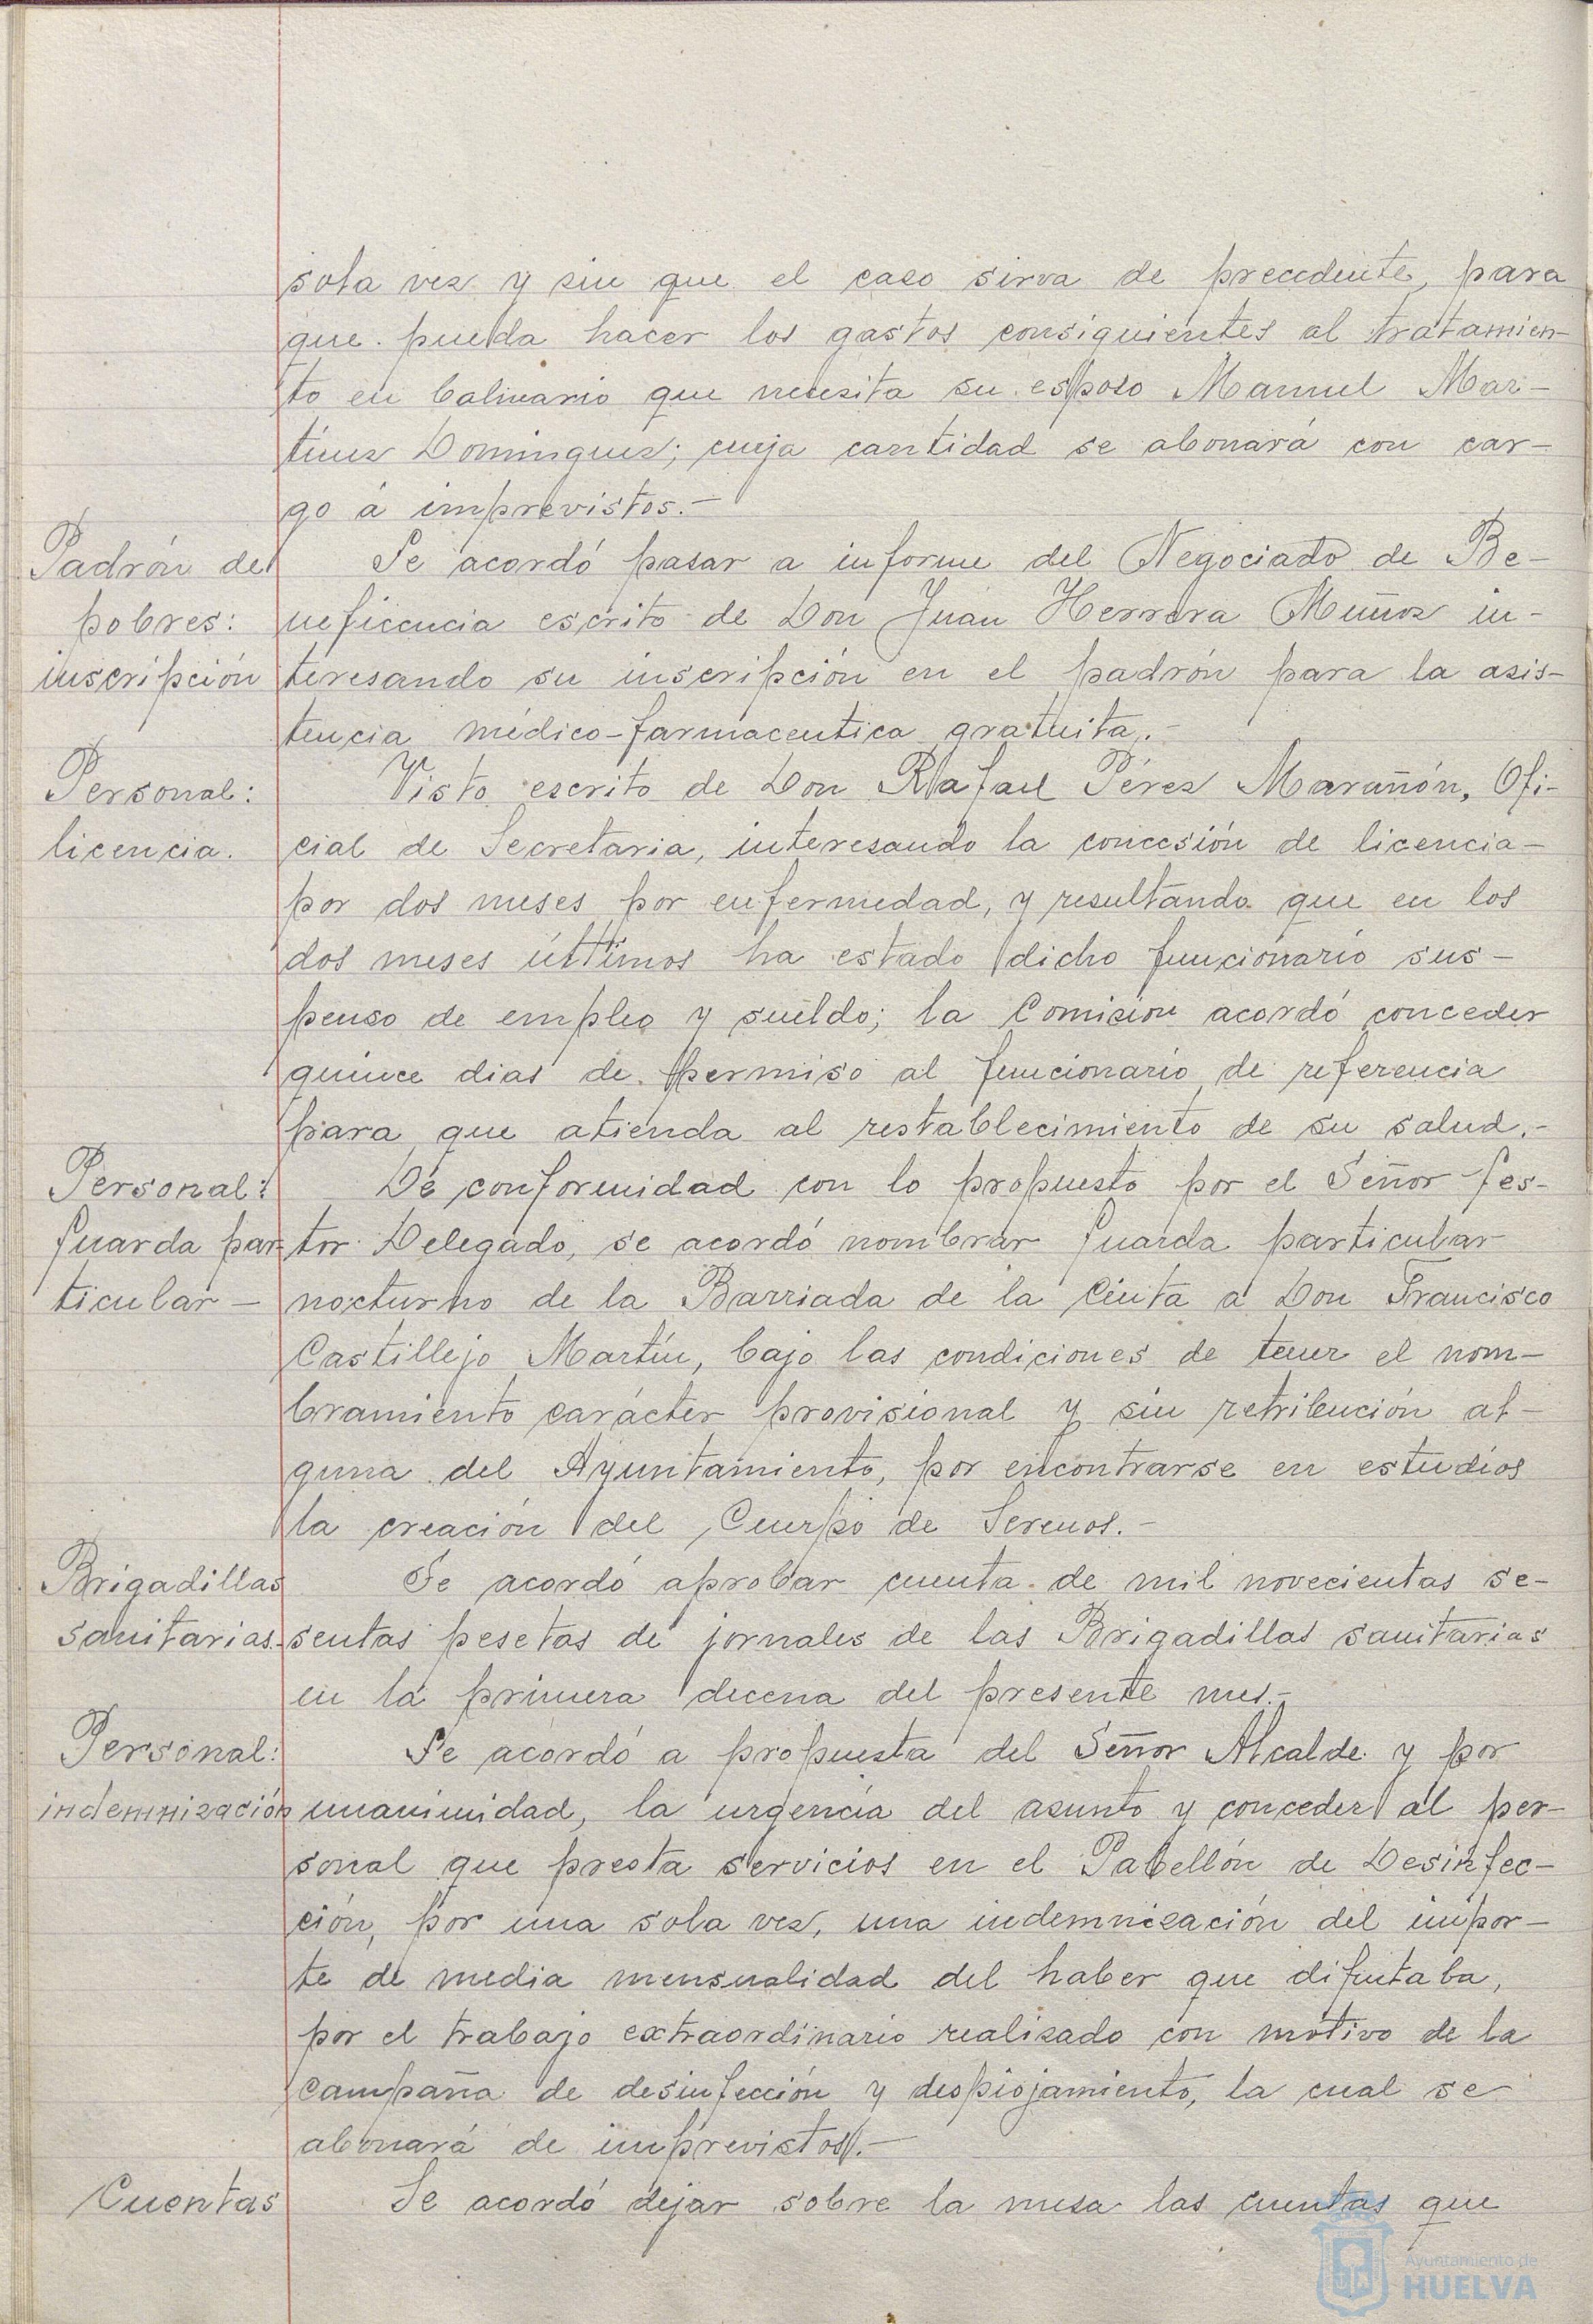 sola vez y sin que el caso sirva de precedente, para
que pueda hacer los gastos consiguientes al tratamien-
to en balneario que necesita su esposo Manuel Mar-
tínez Dominguez; cuya cantidad se abonará con car-
go á imprevistos.-
Padrón de
pobres:
inscripción
Se acordó pasar a informe del Negociado de Be-
neficencia escrito de Don Juan Herrera Muñoz in-
teresando su inscripción en el padrón para la asis-
tencia médico-farmaceutica gratuita.-
Personal:
licencia.
Visto escrito de Don Rafael Pérez Marañón, Ofi-
cial de Secretaria, interesando la concesión de licencia-
por dos meses por enfermedad, y resultando que en los
dos meses últimos ha estado dicho funcionario sus-
penso de empleo y sueldo; la Comision acordó conceder
quince dias de permiso al funcionario de referencia
para que atienda al restablecimiento de su salud.-
Personal:
Guarda par-
ticular-
De conformidad con lo propuesto por el Señor Ges-
tor Delegado, se acordó nombrar Guarda particular
nocturno de la Barriada de la Cinta a Don Francisco
Castillejo Martín, bajo las condiciones de tener el nom-
bramiento carácter provisional y sin retribución al-
guna del Ayuntamiento, por encontrarse en estudios
la creación del Cuerpo de Serenos.-
Brigadillas
sanitarias.-
Se acordó aprobar cuenta de mil novecientas se-
sentas pesetas de jornales de las Brigadillas sanitarias
en la primera decena del presente mes.-
Personal:
indemnización
Se acordó a propuesta del Señor Alcalde y por
unanimidad, la urgencia del asunto y conceder al per-
sonal que presta servicios en el Pabellón de Desinfec-
ción, por una sola vez, una indemnización del impor-
te de media mensualidad del haber que difrutaba,
por el trabajo extraordinario realizado con motivo de la
campaña de desinfección y despiojamiento, la cual se
abonará de imprevistos.-
Cuentas
Se acordó dejar sobre la mesa las cuentas que
Ayuntamiento de
HUELVA